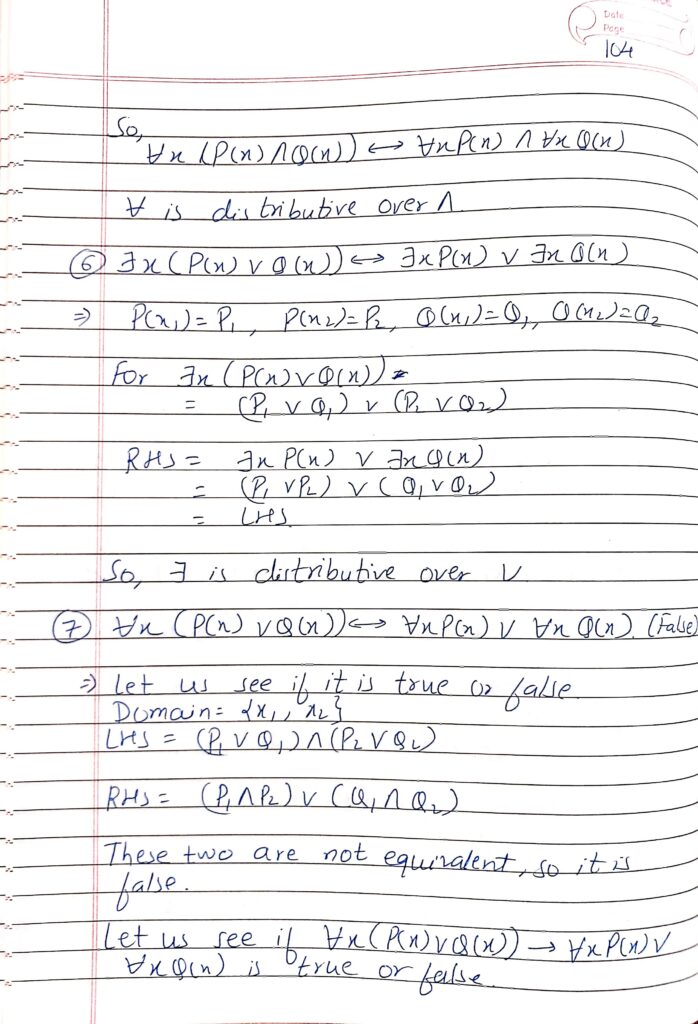 Date
Page
104
So,
∀x (P(x) ∧ Q(x)) ↔ ∀x P(x) ∧ ∀x Q(x)
∀ is distributive over ∧
⑥ ∃x (P(x) ∨ Q(x)) ↔ ∃x P(x) ∨ ∃x Q(x)
⇒ P(x₁) = P₁, P(x₂) = P₂, Q(x₁) = Q₁, Q(x₂) = Q₂
For ∃x (P(x) ∨ Q(x))
= (P₁ ∨ Q₁) ∨ (P₂ ∨ Q₂)
RHS = ∃x P(x) ∨ ∃x Q(x)
= (P₁ ∨ P₂) ∨ (Q₁ ∨ Q₂)
= LHS
So, ∃ is distributive over ∨
⑦ ∀x (P(x) ∨ Q(x)) ↔ ∀x P(x) ∨ ∀x Q(x). (False)
⇒ Let us see if it is true or false.
Domain = {x₁, x₂}
LHS = (P₁ ∨ Q₁) ∧ (P₂ ∨ Q₂)
RHS = (P₁ ∧ P₂) ∨ (Q₁ ∧ Q₂)
These two are not equivalent, so it is
false.
Let us see if ∀x (P(x) ∨ Q(x)) → ∀x P(x) ∨
∀x Q(x) is true or false.